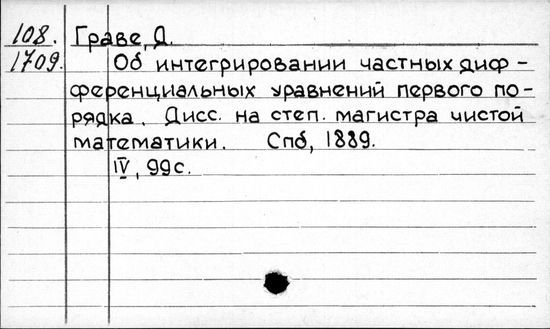 108. Граве, Д.
1709. Об интегрировании частных диф-
ференциальных уравнений первого по-
рядка. Дисс. на степ. магистра чистой
математики. Спб, 1889.
IV, 99с.